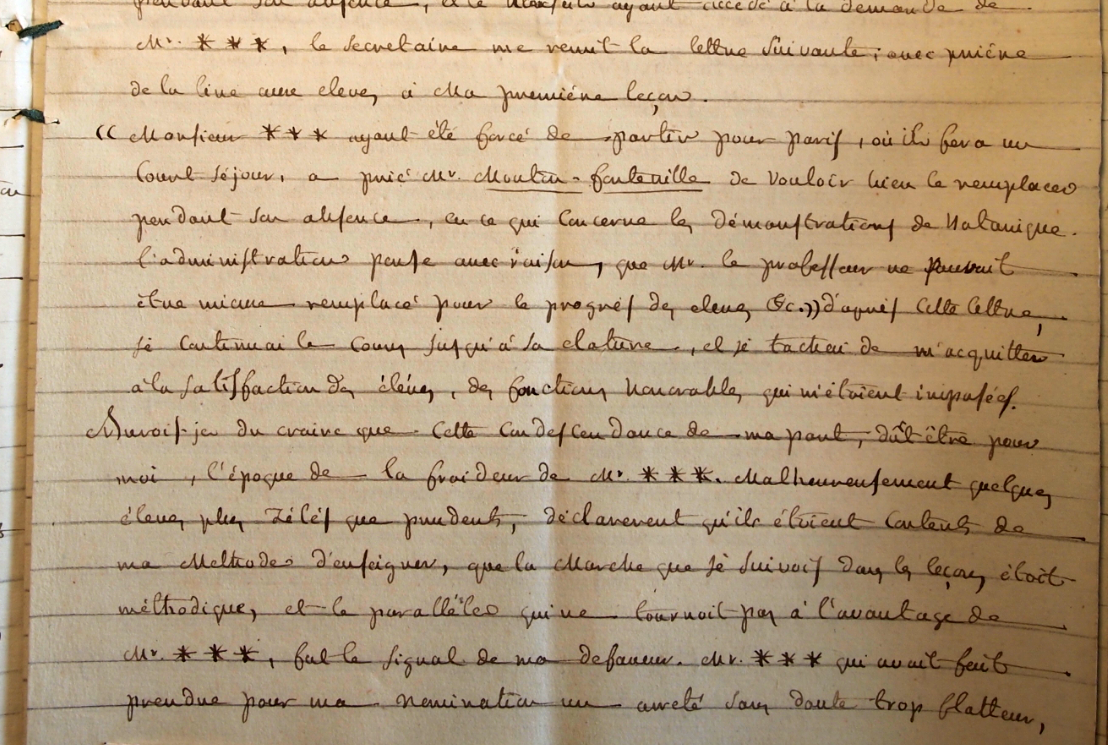 pendant son absence, et le ayant accédé à la demande de
Mr. ***, le secretaire me remit la lettre suivante; avec priére
de la lire aux eleves à Ma premiére leçon.
(( Monsieur *** ayant été forcé de partir pour paris, où il fera un
Court séjour, a prié Mr. Mouton-fontenille de vouloir bien le remplacer
pendant son absence, en ce qui Concerne les démonstrations de Botanique.
l'administration pense avec raison, que Mr. le professeur ne pouvait
être mieux remplacé pour le progrés des eleves &c.)) d'aprés Cette lettre,
je Continuai le Cours jusqu'à sa cloture, et je tachai de m'acquitter
à la satisfaction des éléves, des fonctions honorables qui m'étoient imposées.
Aurois-je du croire que Cette Condescendance de ma part, dût être pour
moi, l'époque de la froideur de Mr. ***. Malheureusement quelques
éleves plus Zélés que prudents, déclarerent qu'ils étoient Contents de
ma Methode d'enseigner, que la Marche que je suivois dans les leçons étoit
méthodique, et le paralléle qui ne tournoit pas à l'avantage de
Mr. ***, fut le signal de ma defaveur. Mr. *** qui avait fait
prendre pour ma nomination un arreté sans doute trop flatteur,